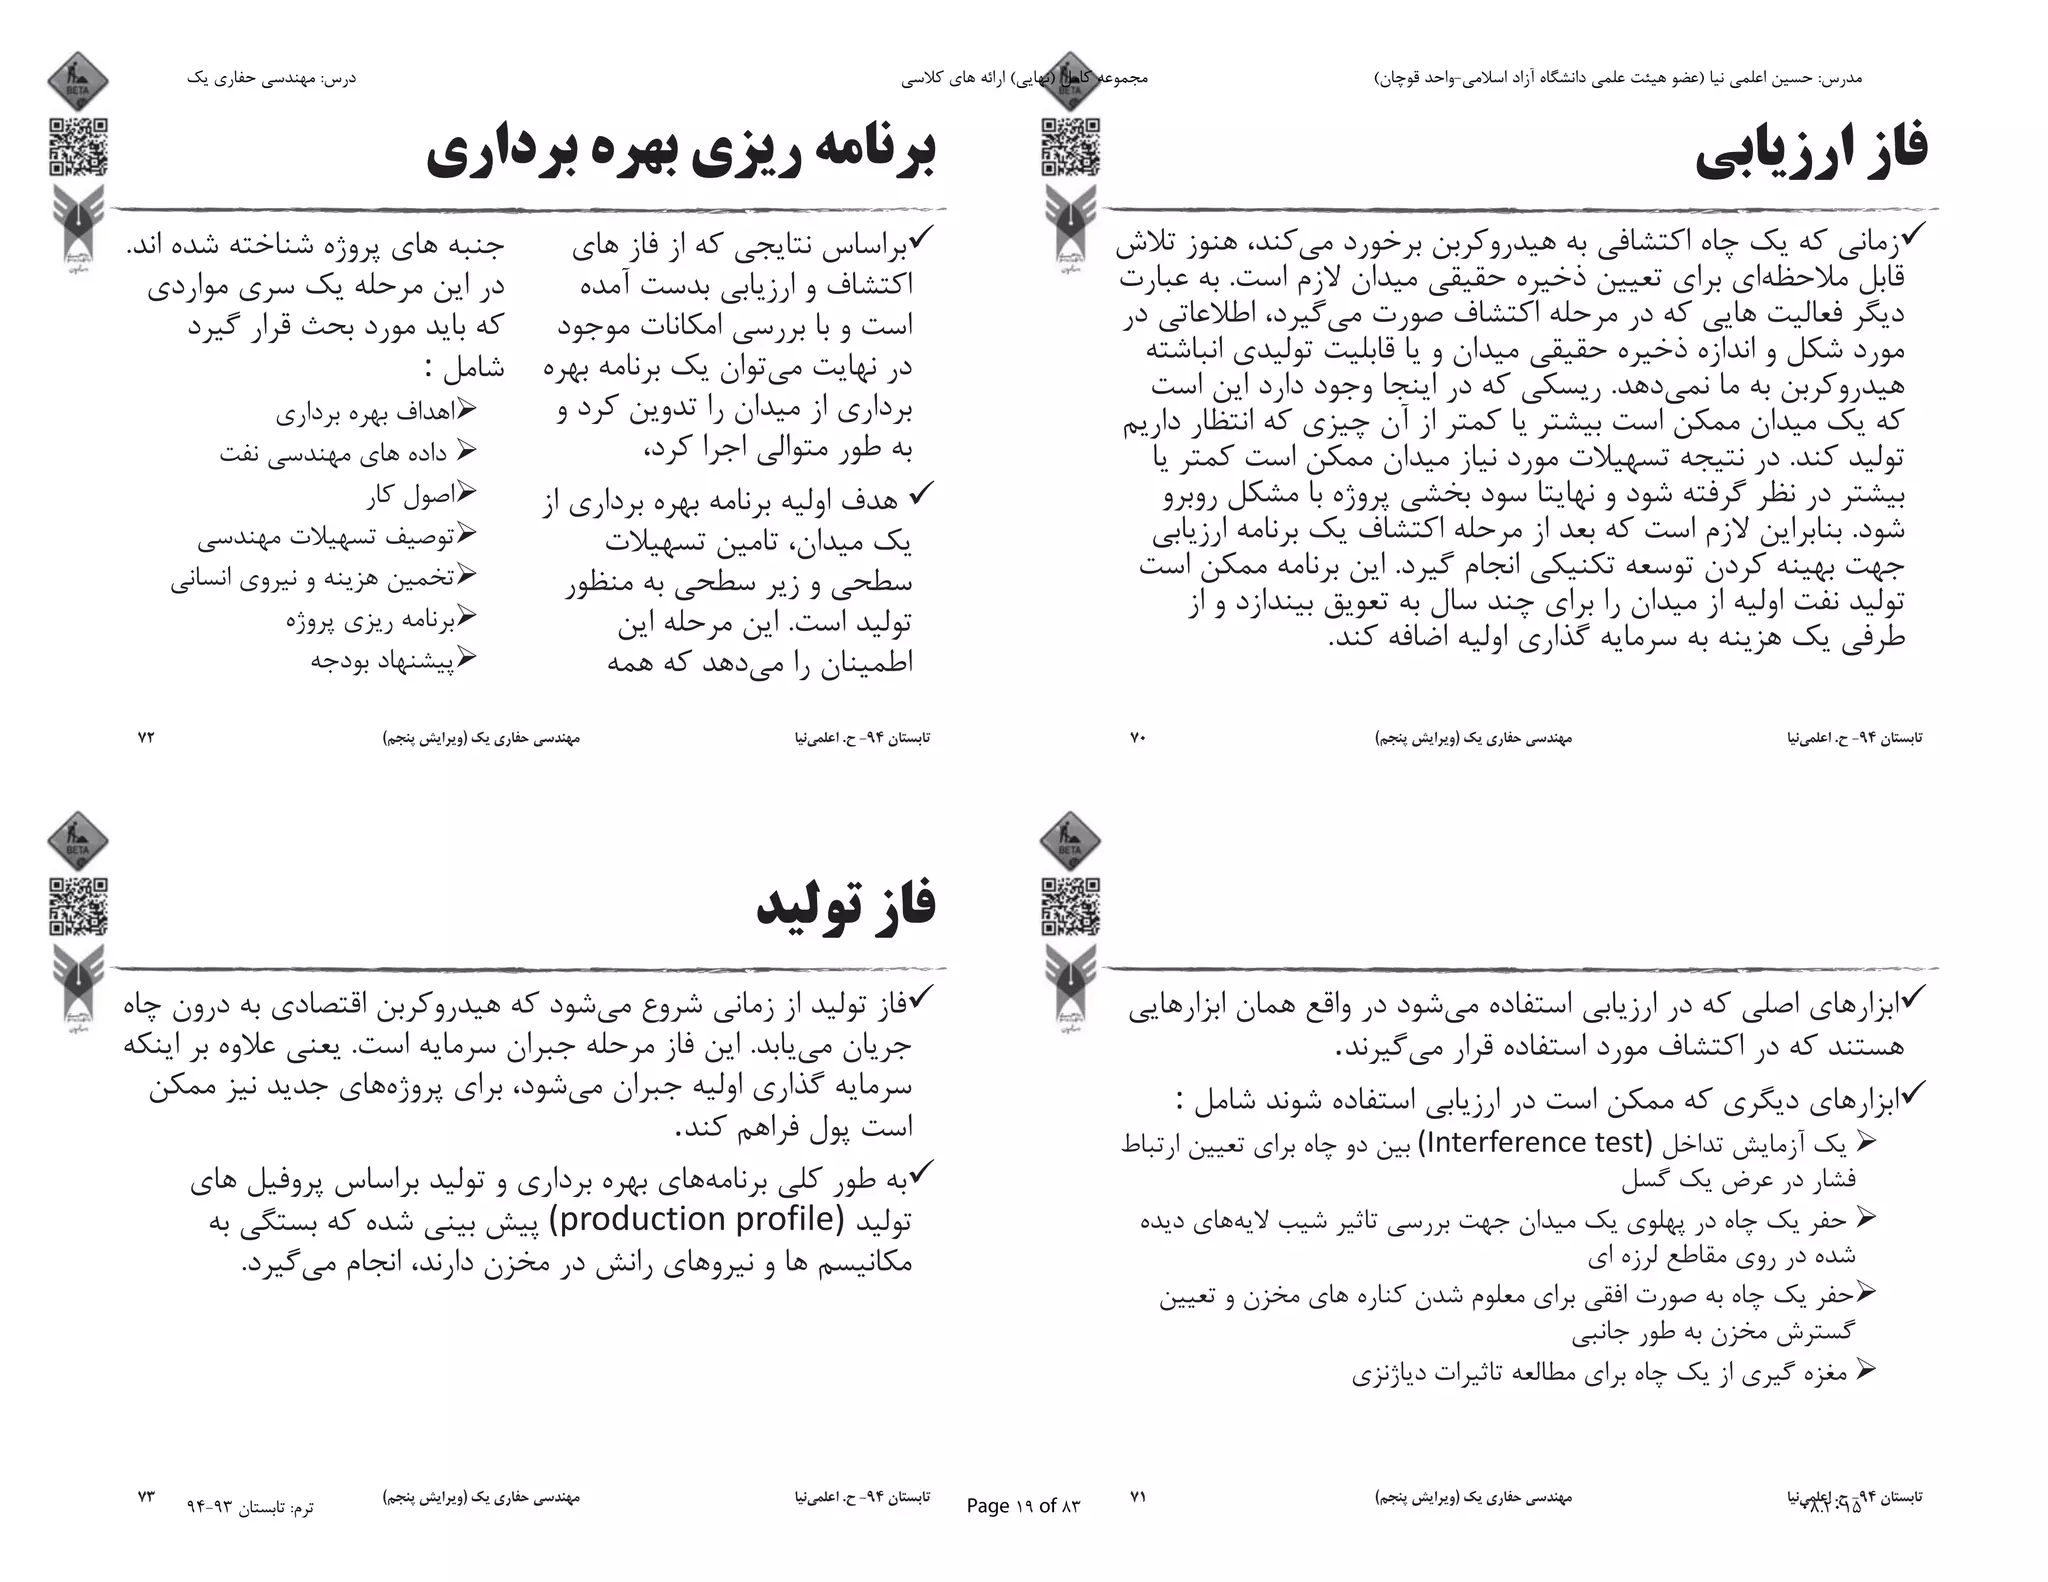 مدرس: حسین اعلمی نیا (عضو هیئت علمی دانشگاه آزاد اسلامی-واحد قوچان)
مجموعه کامل (نهایی) ارائه های کلاسی
درس: مهندسی حفاری یک
BETA
فاز ارزیابی
✓زمانی که یک چاه اکتشافی به هیدروکربن برخورد می‌کند، هنوز تلاش
قابل ملاحظه‌ای برای تعیین ذخیره حقیقی میدان لازم است. به عبارت
دیگر فعالیت هایی که در مرحله اکتشاف صورت می‌گیرد، اطلاعاتی در
مورد شکل و اندازه ذخیره حقیقی میدان و یا قابلیت تولیدی انباشته
هیدروکربن به ما نمی‌دهد. ریسکی که در اینجا وجود دارد این است
که یک میدان ممکن است بیشتر یا کمتر از آن چیزی که انتظار داریم
تولید کند. در نتیجه تسهیلات مورد نیاز میدان ممکن است کمتر یا
بیشتر در نظر گرفته شود و نهایتا سود بخشی پروژه با مشکل روبرو
شود. بنابراین لازم است که بعد از مرحله اکتشاف یک برنامه ارزیابی
جهت بهینه کردن توسعه تکنیکی انجام گیرد. این برنامه ممکن است
تولید نفت اولیه از میدان را برای چند سال به تعویق بیندازد و از
طرفی یک هزینه به سرمایه گذاری اولیه اضافه کند.
تابستان ۹۴- ح. اعلمی‌نیا
مهندسی حفاری یک (ویرایش پنجم)
۷۰
BETA
✓ابزارهای اصلی که در ارزیابی استفاده می‌شود در واقع همان ابزارهایی
هستند که در اکتشاف مورد استفاده قرار می‌گیرند.
✓ابزارهای دیگری که ممکن است در ارزیابی استفاده شوند شامل :
➢ یک آزمایش تداخل (Interference test) بین دو چاه برای تعیین ارتباط
فشار در عرض یک گسل
➢ حفر یک چاه در پهلوی یک میدان جهت بررسی تاثیر شیب لایه‌های دیده
شده در روی مقاطع لرزه ای
➢حفر یک چاه به صورت افقی برای معلوم شدن کناره های مخزن و تعیین
گسترش مخزن به طور جانبی
➢ مغزه گیری از یک چاه برای مطالعه تاثیرات دیاژنزی
تابستان ۹۴- ح. اعلمی‌نیا
مهندسی حفاری یک (ویرایش پنجم)
۷۱
BETA
برنامه ریزی بهره برداری
✓براساس نتایجی که از فاز های
اکتشاف و ارزیابی بدست آمده
است و با بررسی امکانات موجود
در نهایت می‌توان یک برنامه بهره
برداری از میدان را تدوین کرد و
به طور متوالی اجرا کرد،
✓ هدف اولیه برنامه بهره برداری از
یک میدان، تامین تسهیلات
سطحی و زیر سطحی به منظور
تولید است. این مرحله این
اطمینان را می‌دهد که همه
جنبه های پروژه شناخته شده اند.
در این مرحله یک سری مواردی
که باید مورد بحث قرار گیرد
شامل :
➢اهداف بهره برداری
➢ داده های مهندسی نفت
➢اصول کار
➢توصیف تسهیلات مهندسی
➢تخمین هزینه و نیروی انسانی
➢برنامه ریزی پروژه
➢پیشنهاد بودجه
تابستان ۹۴- ح. اعلمی‌نیا
مهندسی حفاری یک (ویرایش پنجم)
۷۲
BETA
فاز تولید
✓فاز تولید از زمانی شروع می‌شود که هیدروکربن اقتصادی به درون چاه
جریان می‌یابد. این فاز مرحله جبران سرمایه است. یعنی علاوه بر اینکه
سرمایه گذاری اولیه جبران می‌شود، برای پروژه‌های جدید نیز ممکن
است پول فراهم کند.
✓به طور کلی برنامه‌های بهره برداری و تولید براساس پروفیل های
تولید (production profile) پیش بینی شده که بستگی به
مکانیسم ها و نیروهای رانش در مخزن دارند، انجام می‌گیرد.
تابستان ۹۴- ح. اعلمی‌نیا
مهندسی حفاری یک (ویرایش پنجم)
۷۳
Page ۱۹ of ۸۳
ترم: تابستان ۹۳-۹۴